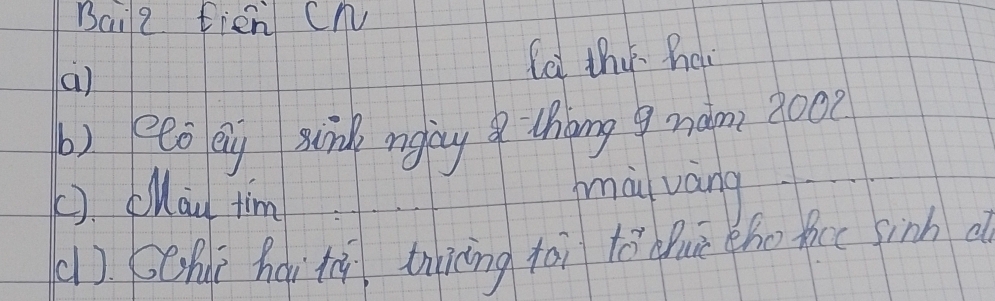 Bài 2 Điền CN
a) là thứ hai
b) Cô ấy sinh ngày 2 tháng 9 năm 2002
c). Màu tím ........ màu vàng ........
d). Chủ, trường tôi tổ chức cho học sinh đi